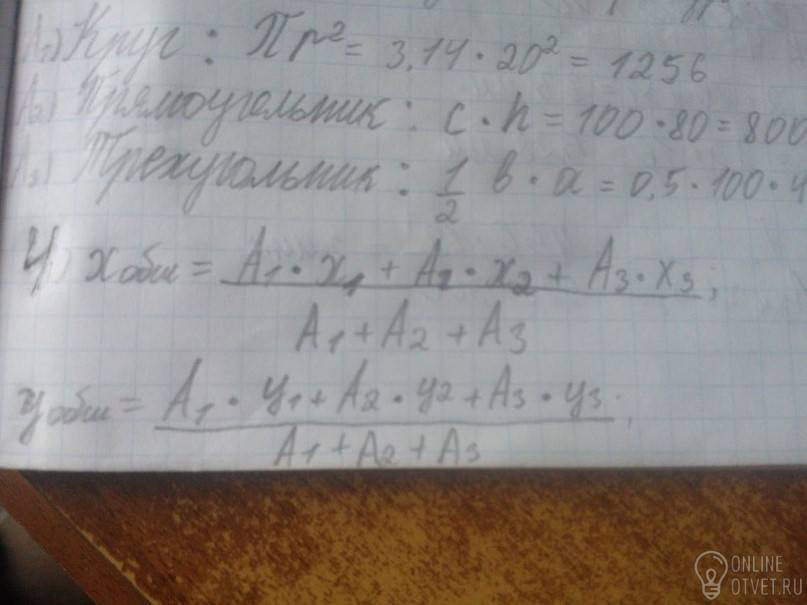 A₁) Круг : Пr² = 3,14 · 20² = 1256
A₂) Прямоугольник : c · h = 100 · 80 = 800
A₃) Трехугольник : 1/2 в · a = 0,5 · 100 · 4
4) x общ = A₁ · x₁ + A₂ · x₂ + A₃ · x₃ ;
A₁ + A₂ + A₃
y общ = A₁ · y₁ + A₂ · y₂ + A₃ · y₃ .
A₁ + A₂ + A₃
ONLINE
OTVET.RU